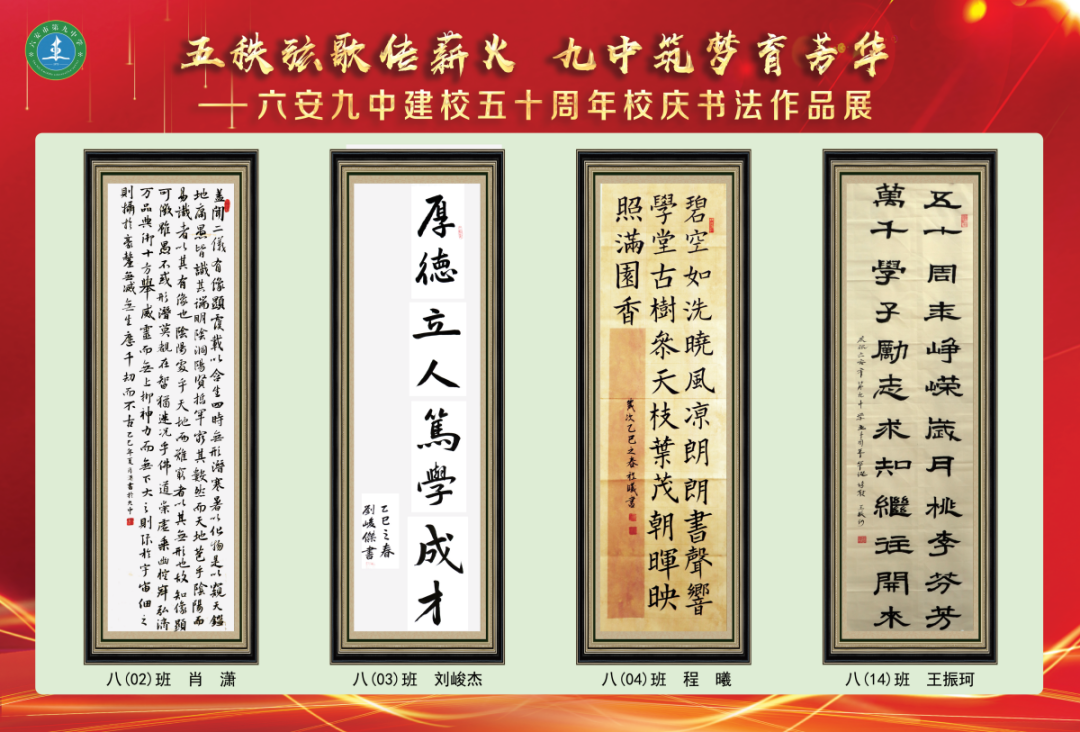 六安市第九中学
五秩弦歌传薪火 九中筑梦育芳华
——六安九中建校五十周年校庆书法作品展
盖聞二儀有像顯覆載以含生四時無形潛寒暑以化物是以窺天鑑
地庸愚皆識其端明陰洞陽賢哲罕窮其數然而天地苞乎陰陽而
易識者以其有像也陰陽處乎天地而難窮者以其無形也故知像顯
可徵雖愚不惑形潛莫覩在智猶迷况乎佛道崇虛乘幽控寂弘濟
万品典御十方舉威靈而無上抑神力而無下大之則弥於宇宙細之
則攝於毫釐無滅無生歷千劫而不古 乙巳年夏肖瀟書於九中
厚德立人篤學成才
乙巳之春
劉峻傑書
碧空如洗曉風凉朗朗書聲響
學堂古樹參天枝葉茂朝暉映
照滿園香
歲次乙巳之春程曦書
五十周年峥嵘歲月桃李芬芳
萬千學子勵志求知繼往開來
八(02)班 肖 潇
八(03)班 刘峻杰
八(04)班 程 曦
八(14)班 王振珂